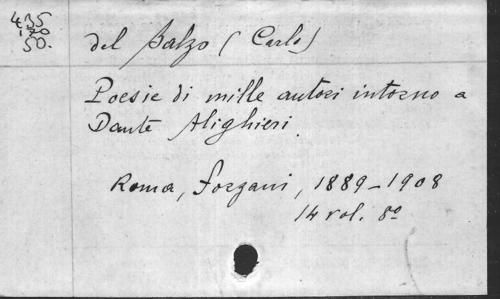 435
120
50.
del Balzo (Carlo)
Poesie di mille autori intorno a
Dante Alighieri.
Roma, Forzani, 1889-1908
14 vol. 8º